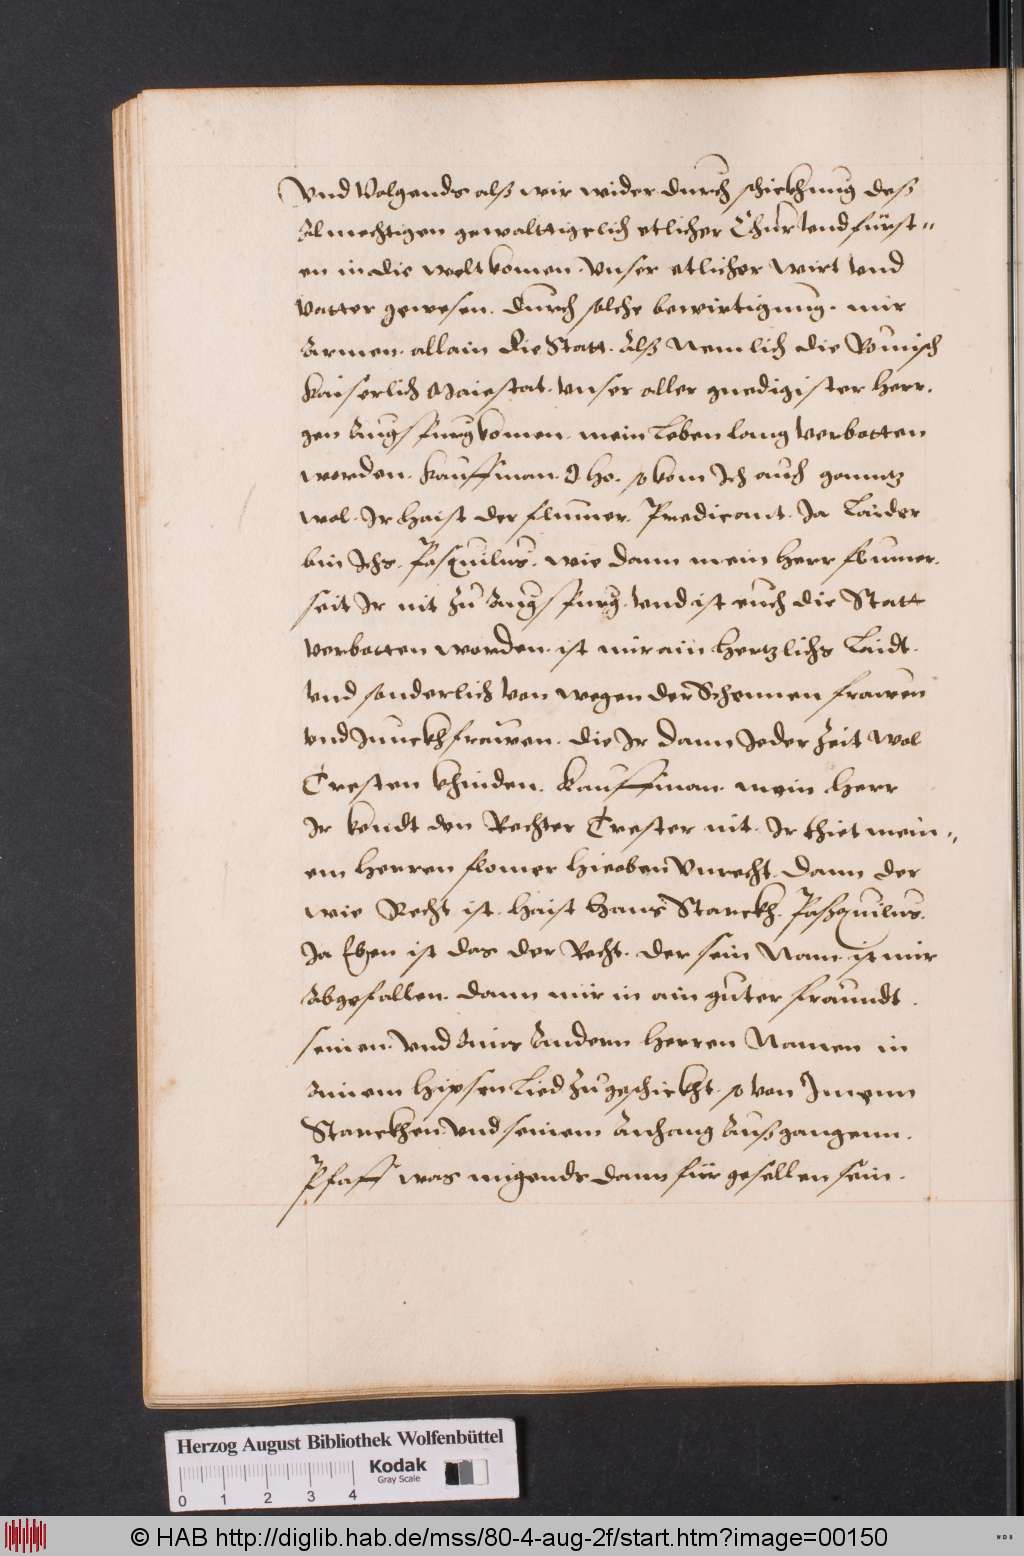 Vnd Volgends alß wir wider durch schickhnug deß
Almechtigen gewalttigelich etlicher Chur vnd fürst=
en in die welt komen. Vnser etlicher wirt vnd
Vatter gewesen. durch solche bewirtigung. mir
Armen. allain die Statt. Alß Nemlich die Römisch
Kaiserlich Maiestat. Vnser aller gnedigister Herr.
gen Augspurg komen. mein Leben lang Verbotten
worden. Kauffman. O ho. so kom Ich auch ganntz
wol. Ir haist der flumer. Predicant. Ja Laider
bin Ichs. Pasquilus. wie dann mein Herr flumer.
seit Ir nit zu Augspurg. vnd ist euch die Statt
Verbotten worden. ist mir ain Hertzlichs Laidt.
Vnd sonderlich Von wegen der Schennen frawen
vnd Junckhfrawen. die Ir dann Jeder Zeit wol
Tresten khinden. Kauffman. mein Herr
Ir kendt den Rechter Trester nit. Ir thiet mein=
em Herren flomer hieoben Vnrecht. Dann der
wie Recht ist. haist Hans Starckh. Paßquilus.
Ja Eben ist das der Recht. der sein Nam ist mir
Abgefallen. dann mir in ain guter fraundt.
seinen. Vnd Ains Andern Herren Namen in
Ainem hipsen Lied zugeschickht. so von Imenn
Starckhen. Vnd seinem Anhang Außgangenn.
Pfaff was migends dann für gesellen sein.
Herzog August Bibliothek Wolfenbüttel
Kodak
Gray Scale
0 1 2 3 4
© HAB http://diglib.hab.de/mss/80-4-aug-2f/start.htm?image=00150